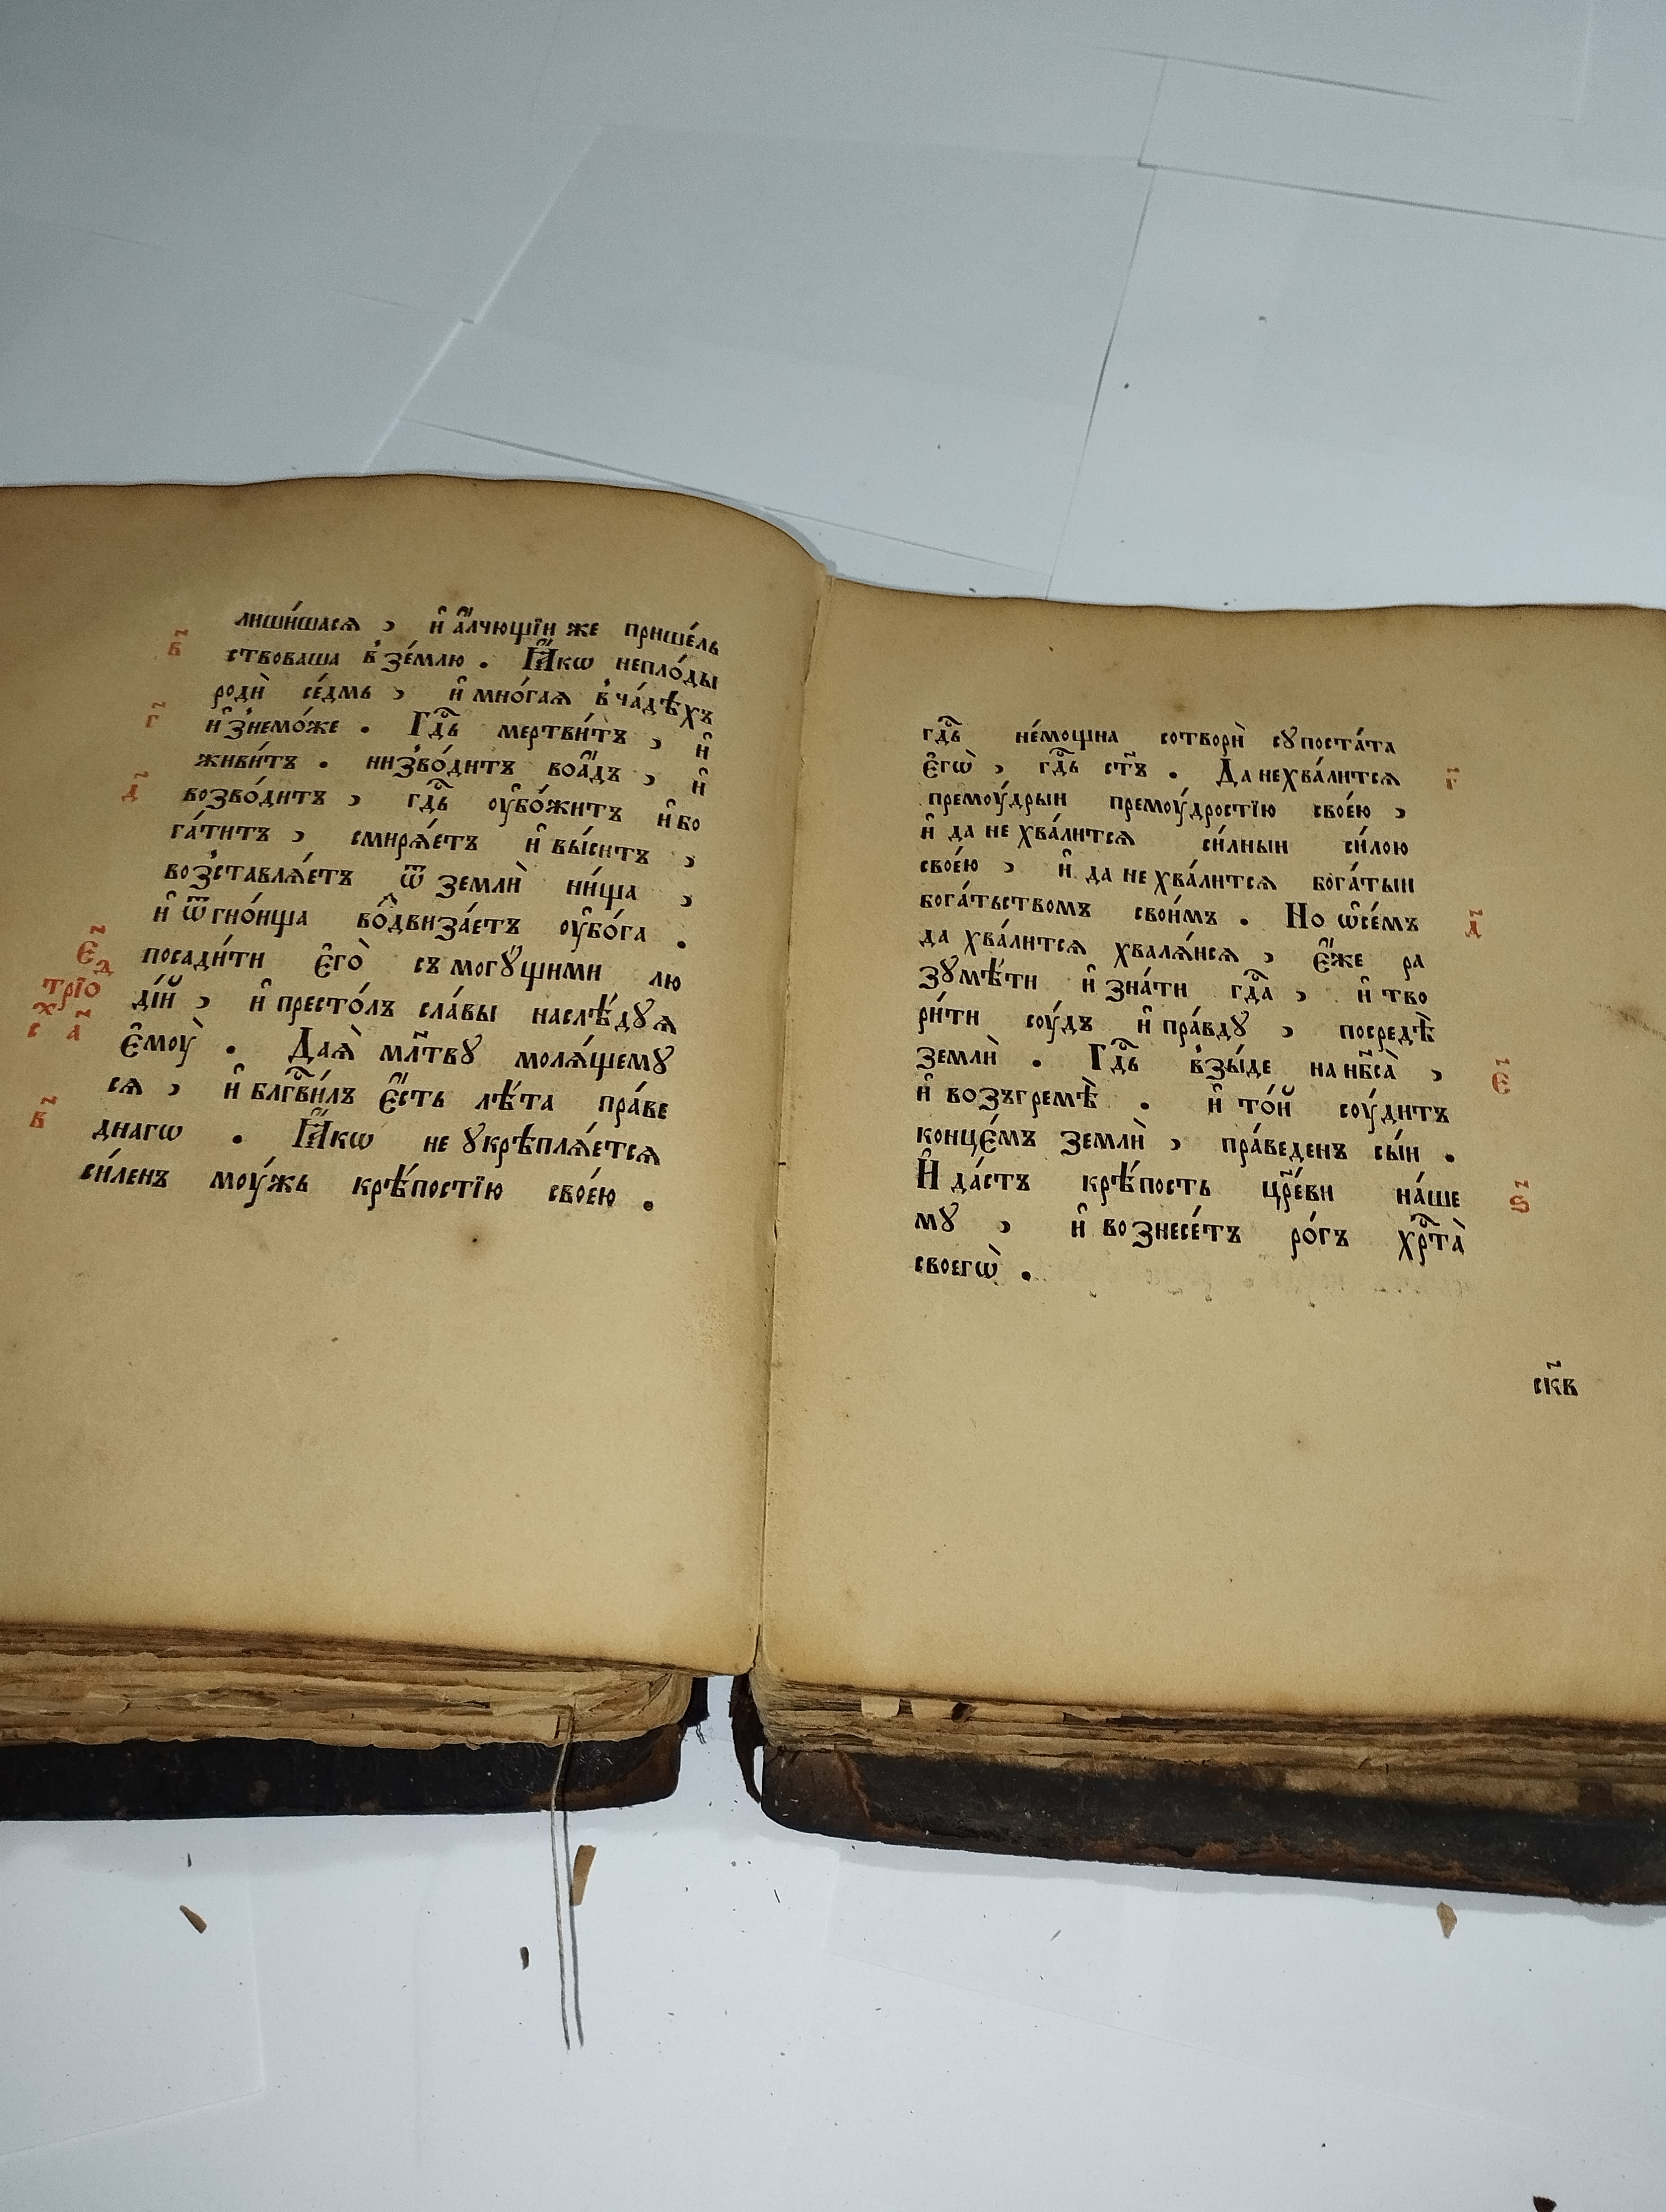 лиши́шасѧ , и҆ а҆́лчющїи же прише́ль
ствоваша в̾ зе́млю . Ꙗ҆́кѡ непло́ды
в҃
родѝ се́дмь , и҆ мно́гаѧ в̾ ча́дѣхъ
и҆з̾немо́же . Гдⷭ҇ь мертви́тъ , и҆
г҃
живи́тъ . низво́дитъ воа҆́дъ , и҆
возво́дитъ , гдⷭ҇ь оу҆бо́житъ и҆ бо
д҃
га́титъ , смирѧ́етъ и҆ вы́ситъ ,
воз̾ставлѧ́етъ ѿ землѝ ни́ща ,
и҆ ѿ гно́ища во́двиза́етъ оу҆бо́га .
посади́ти є҆го̀ съ могꙋ́щими лю
є҃
дїи́й , и҆ престо́лъ сла́вы наслѣ́дꙋѧ
трїѡⷣ
є҆моу̀ . Даѧ̀ мл҃твꙋ молѧ́щемꙋ
с х҃ а҃
сѧ , и҆ блгⷭ҇ви́лъ є҆́сть лѣ́та пра́ве
днагѡ . Ꙗ҆́кѡ не ᲂукрѣплѧ́етсѧ
в҃
си́ленъ моу́жь крѣ́постїю свое́ю .
гдⷭ҇ь не́мощна сотворѝ сꙋпоста́та
є҆гѡ̀ , гдⷭ҇ь ст҃ъ . Да нехва́литсѧ
г҃
премоу́дрыи премоу́дростїю свое́ю ,
и҆ да не хва́литсѧ си́лныи си́лою
свое́ю , и҆ да не хва́литсѧ бога́тыи
бога́тьствомъ свои́мъ . Но ѡ҆се́мъ
д҃
да хва́литсѧ хвалѧ́исѧ , є҆́же ра
зꙋмѣ́ти и҆ зна́ти гдⷭ҇а , и҆ тво
ри́ти соу́дъ и҆ пра́вдꙋ , посредѣ̀
землѝ . Гдⷭ҇ь в̾зы́де на нб҃са̀ ,
є҃
и҆ возъгремѣ̀ . и҆ то́й соу́дитъ
конце́мъ землѝ , пра́веденъ сы́и .
И҆ да́стъ крѣ́пость цр҃е́ви на́ше
ѕ҃
мꙋ , и҆ вознесе́тъ ро́гъ хрⷭ҇та̀
своегѡ̀ .
ск҃в